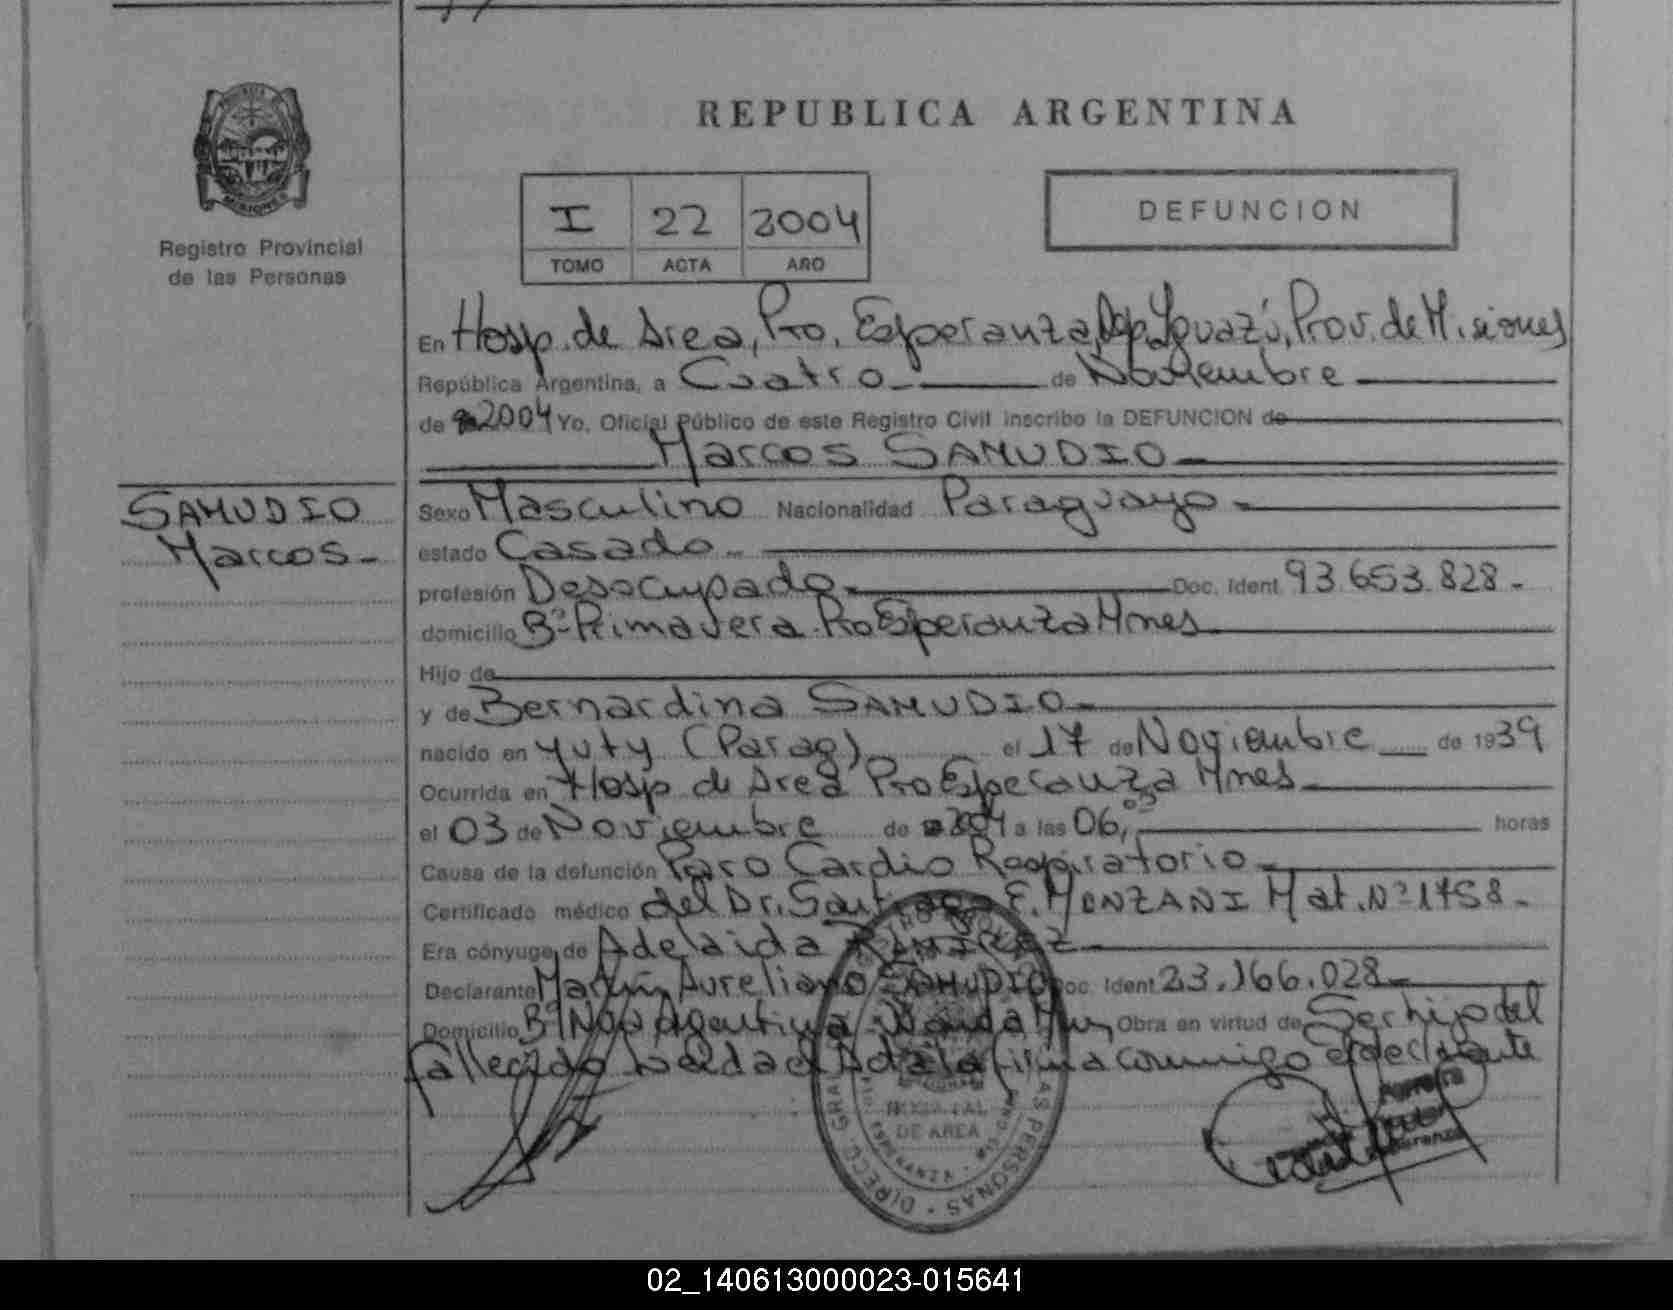 REPUBLICA ARGENTINA
I 22 2004
TOMO ACTA AÑO
DEFUNCION
MISIONES
Registro Provincial
de las Personas
En Hosp. de Area, Pto. Esperanza, Dep. Iguazú, Prov. de Misiones
República Argentina, a Cuatro de Noviembre
de 2004 Yo, Oficial Público de este Registro Civil inscribo la DEFUNCION de
Marcos SAMUDIO
SAMUDIO
Marcos
Sexo Masculino Nacionalidad Paraguayo
estado Casado
profesión Desocupado Doc. Ident. 93.653.828
domicilio Bº Primavera Pto Esperanza Mnes
Hijo de
y de Bernardina SAMUDIO
nacido en Yuty (Parag) el 17 de Noviembre de 1939
Ocurrida en Hosp de Area Pto Esperanza Mnes
el 03 de Noviembre de 2004 a las 06,05 horas
Causa de la defunción Paro Cardio Respiratorio
Certificado médico del Dr. Santiago E. MONZANI Mat. Nº 1758
Era cónyuge de Adelaida RAMIREZ
Declarante Martín Aureliano SAMUDIO Doc. Ident. 23.166.028
Domicilio Bº Nva Argentina Wanda Mnes Obra en virtud de Ser hijo del
fallecido Leída el Acta la firma conmigo el declarante
HOSPITAL
DE AREA
PERSONAS
02_140613000023-015641